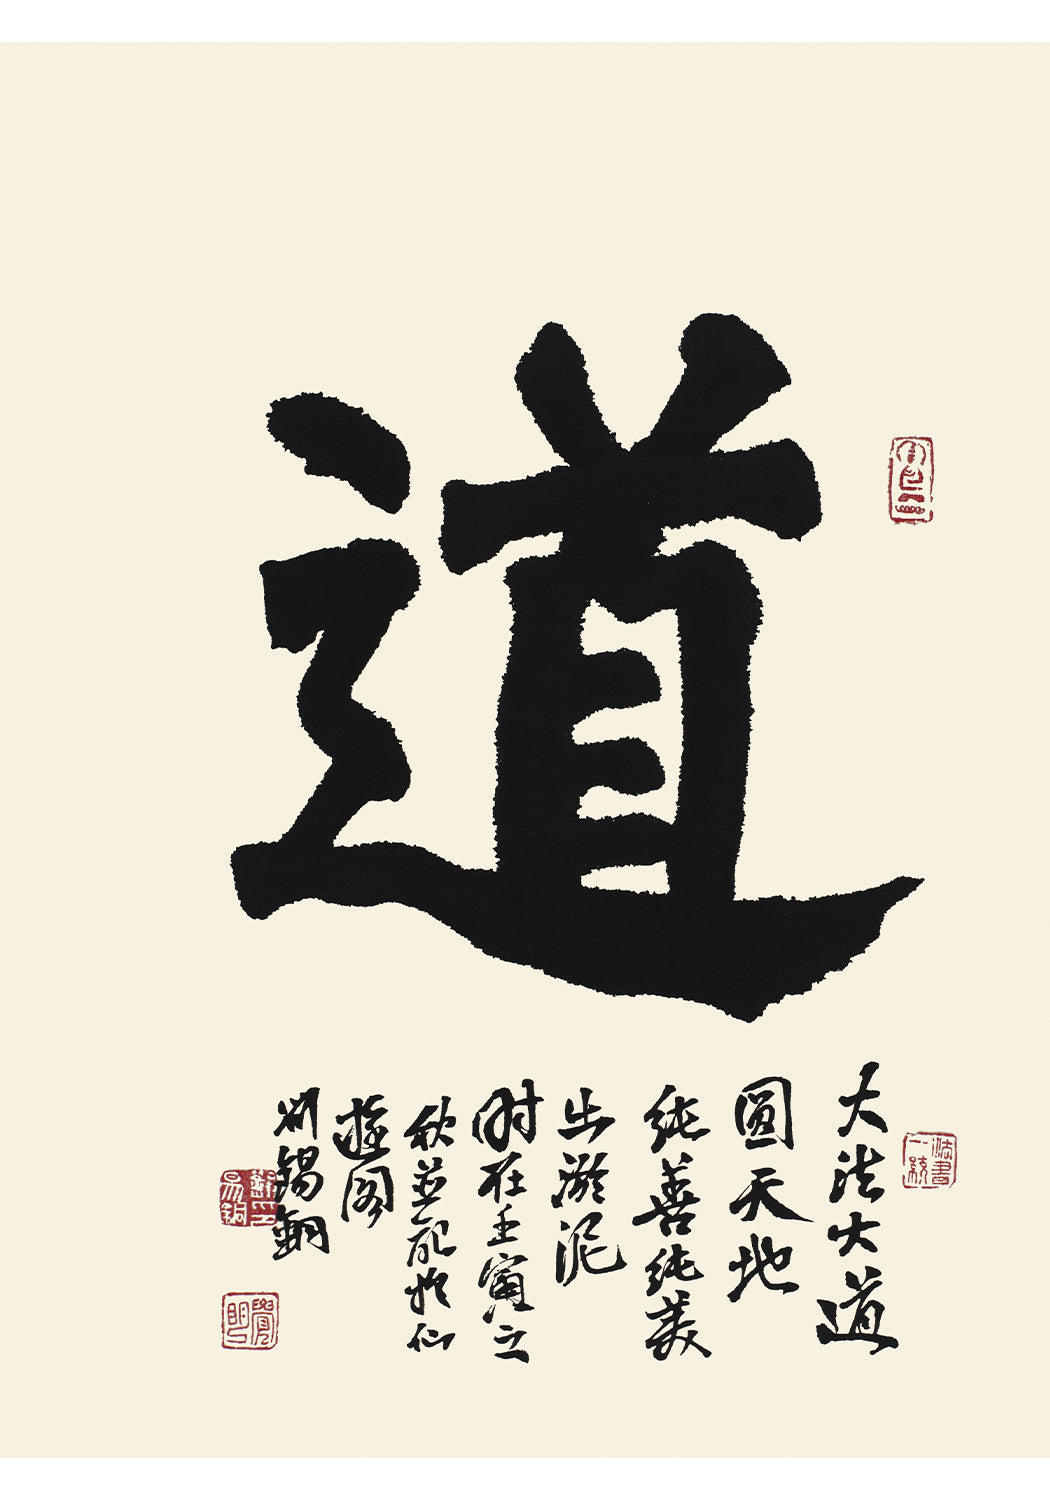 道
大法大道
圆天地
纯善纯美
出淤泥
时在壬寅之
秋并配於仙
遊阁
刘锡铜
法书一统
觉明